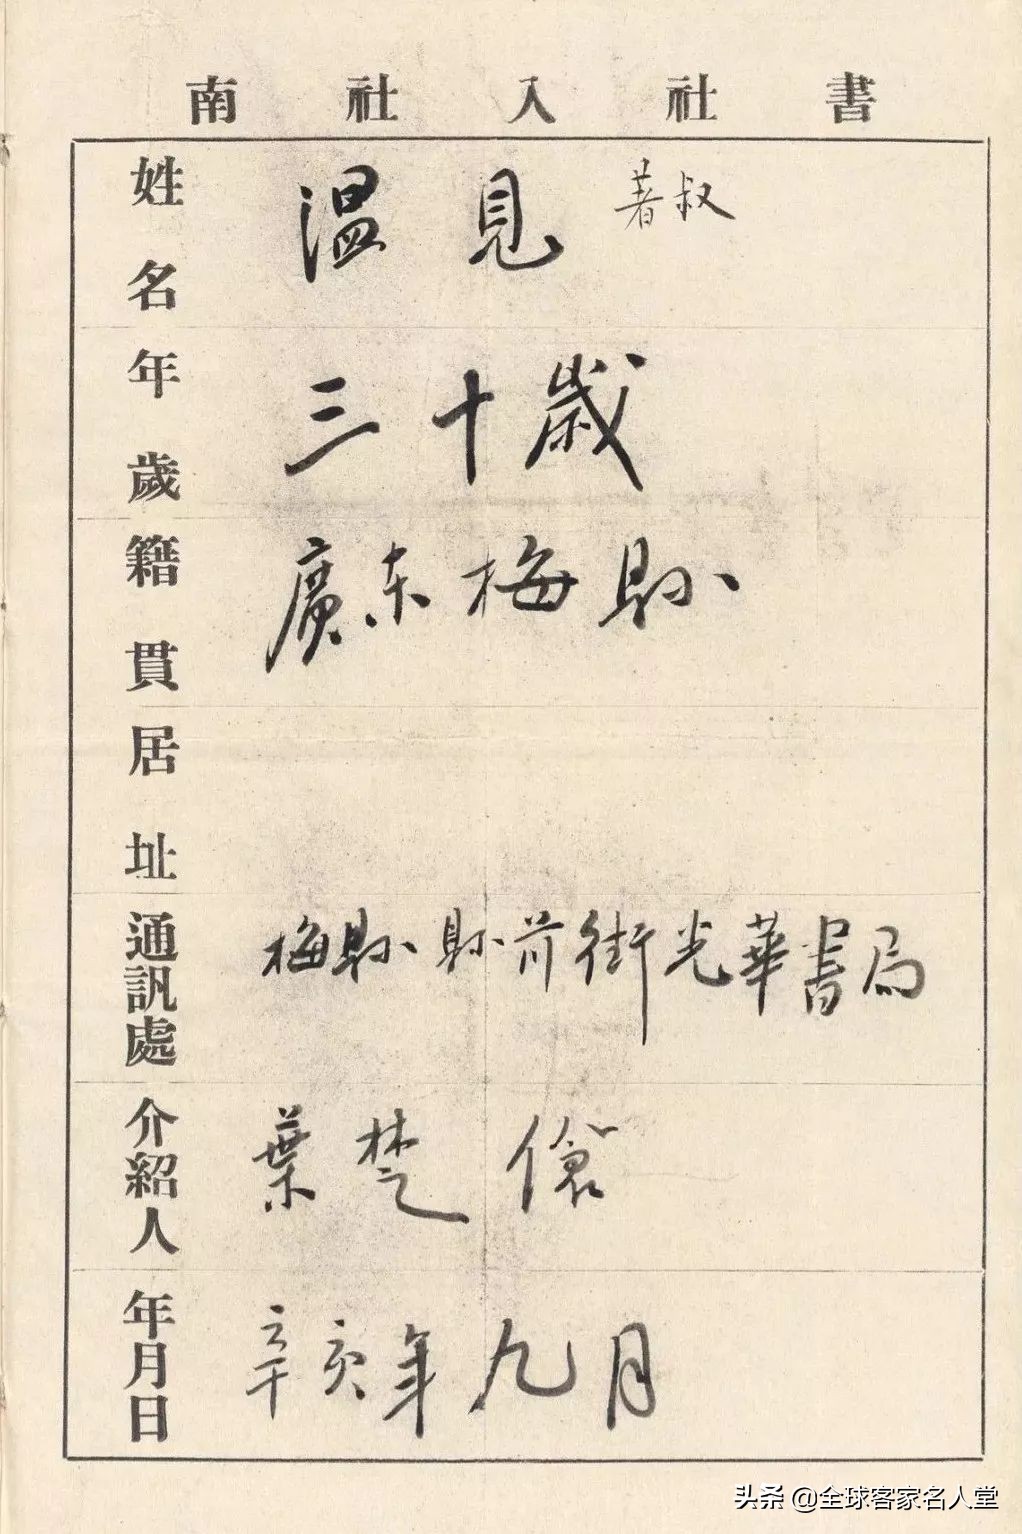 南社入社書
姓名 温見 著叔
年歲 三十歲
籍貫 廣东梅縣
居址
通訊處 梅縣縣前街光華書局
介紹人 葉楚傖
年月日 辛亥年九月
头条 @全球客家名人堂